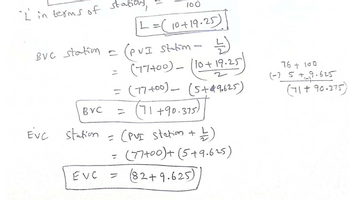 'L' in terms of station, = 
100
L = (10+19.25)
BVC station = (PVI station - L/2)
= (77+00) - (10+19.25)/2
= (77+00) - (5+9.625)
BVC = (71+90.375)
76 + 100
(-) 5 + 9.625
(71 + 90.275)
EVC station = (PVI station + L/2)
= (77+00)+(5+9.625)
EVC = (82+9.625)